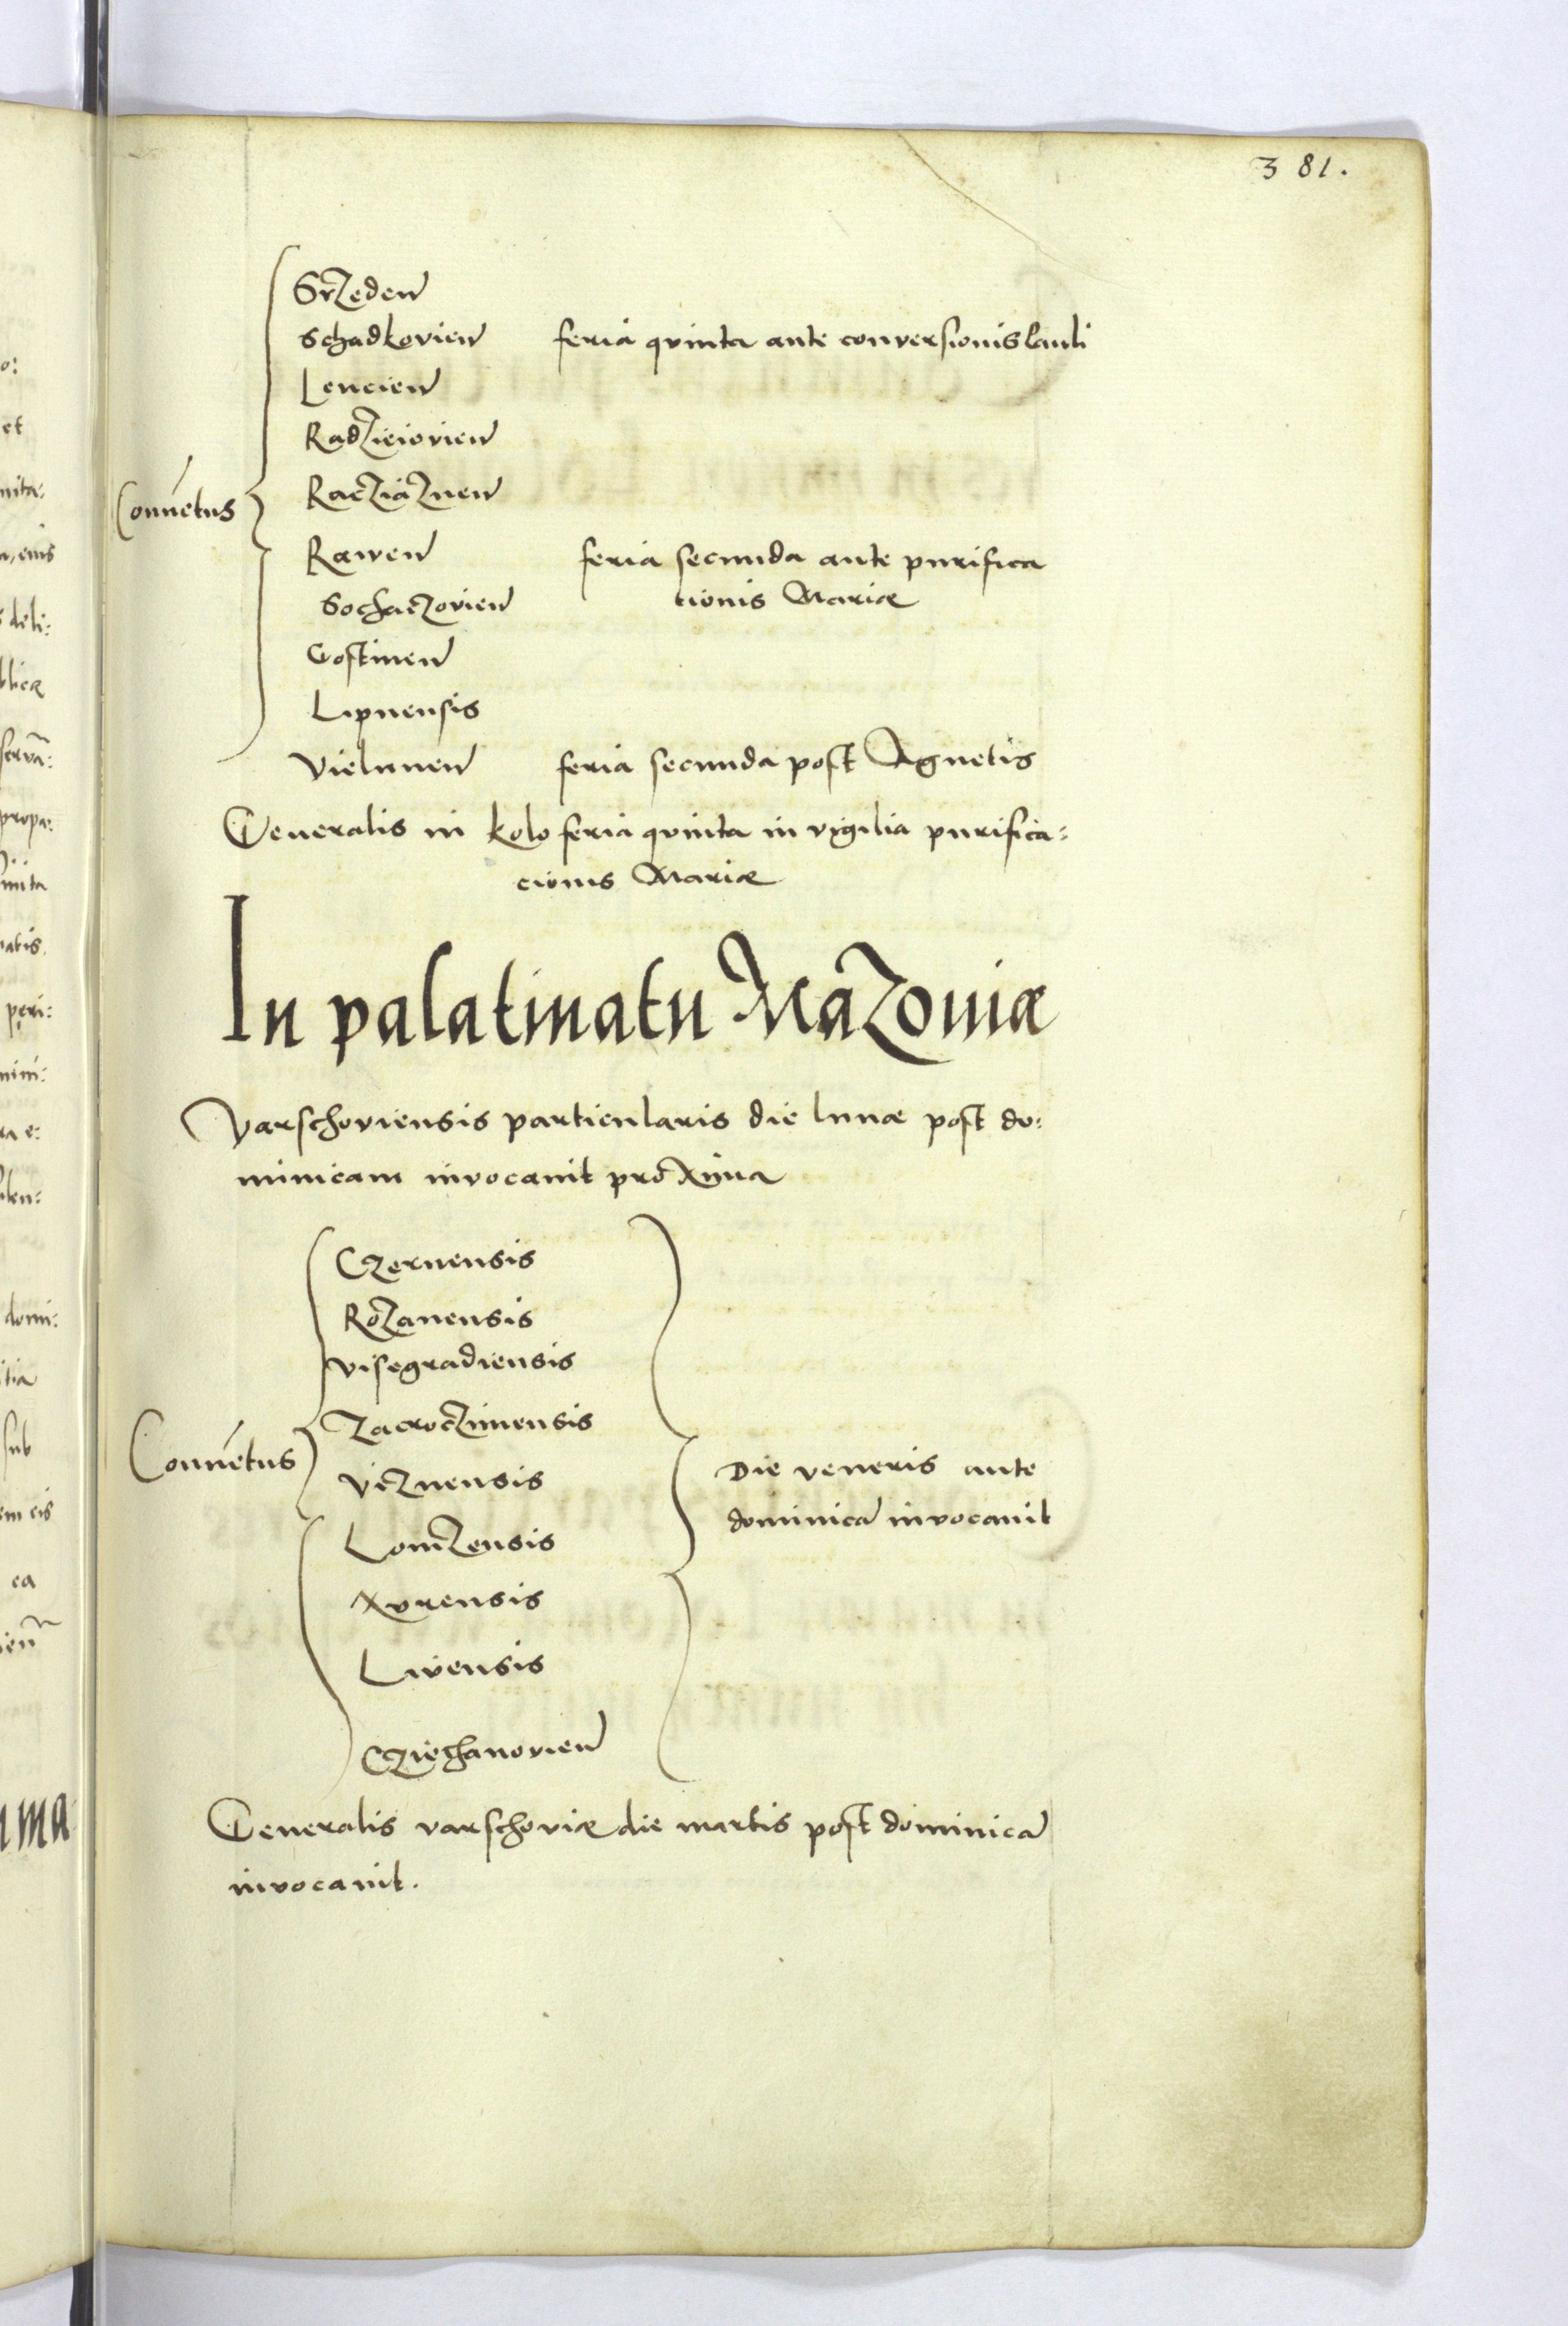 381.
Srzeden
Schadkovien feria quinta ante conversionis Pauli
Lencien
Radzieiovien
Racziaznen
Convetus
Rawen feria secunda ante purifica
Sochaczovien tionis Mariæ
Gostinen
Lipnensis
Vielunen feria secunda post Agnetis
Generalis in kolo feria quinta in vigilia purifica:
cionis Mariæ
In palatinatu Mazoviæ
Varschoviensis particularis die lunæ post do:
minicam invocavit proxima
Czernensis
Rozanensis
Visegradiensis
Zacroczimensis
Convetus
Viznensis Die veneris ante
dominica invocavit
Lomzensis
Nurensis
Livensis
Cziechanovien
Generalis varschoviæ die martis post dominica
invocavit.